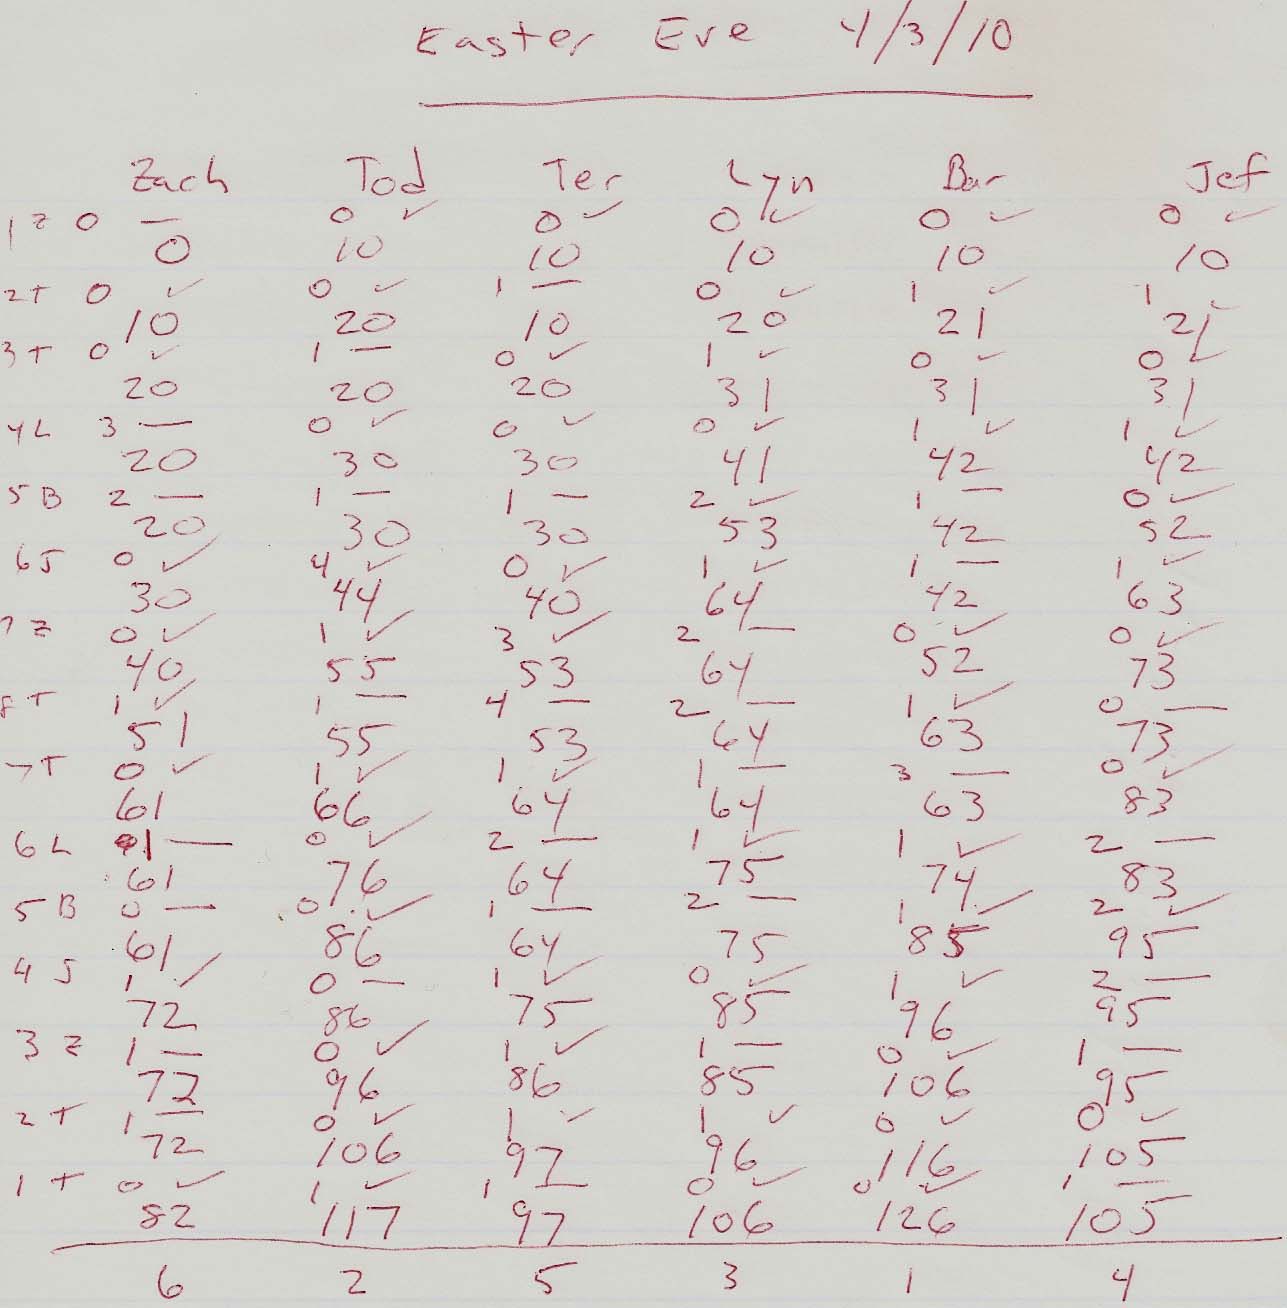 Easter Eve 4/3/10
Zach Tod Ter Lyn Bar Jef
1 Z 0 — 0 ✓ 0 ✓ 0 ✓ 0 ✓ 0 ✓
0 10 10 10 10 10
2 T 0 ✓ 0 ✓ 1 — 0 ✓ 1 ✓ 1 ✓
10 20 10 20 21 21
3 T 0 ✓ 1 — 0 ✓ 1 ✓ 0 ✓ 0 ✓
20 20 20 31 31 31
4 L 3 — 0 ✓ 0 ✓ 0 ✓ 1 ✓ 1 ✓
20 30 30 41 42 42
5 B 2 — 1 — 1 — 2 ✓ 1 — 0 ✓
20 30 30 53 42 52
6 J 0 ✓ 4 ✓ 0 ✓ 1 ✓ 1 — 1 ✓
30 44 40 64 42 63
7 Z 0 ✓ 1 ✓ 3 ✓ 2 — 0 ✓ 0 ✓
40 55 53 64 52 73
8 T 1 ✓ 1 — 4 — 2 — 1 ✓ 0 —
51 55 53 64 63 73
7 T 0 ✓ 1 ✓ 1 ✓ 1 — 3 — 0 ✓
61 66 64 64 63 83
6 L 1 — 0 ✓ 2 — 1 ✓ 1 ✓ 2 —
61 76 64 75 74 83
5 B 0 — 0 ✓ 1 — 2 — 1 ✓ 2 ✓
61 86 64 75 85 95
4 J 1 ✓ 0 — 1 ✓ 0 ✓ 1 ✓ 2 —
72 86 75 85 96 95
3 Z 1 — 0 ✓ 1 ✓ 1 — 0 ✓ 1 —
72 96 86 85 106 95
2 T 1 — 0 ✓ 1 ✓ 1 ✓ 0 ✓ 0 ✓
72 106 97 96 116 105
1 T 0 ✓ 1 ✓ 1 — 0 ✓ 0 ✓ 1 —
82 117 97 106 126 105
6 2 5 3 1 4